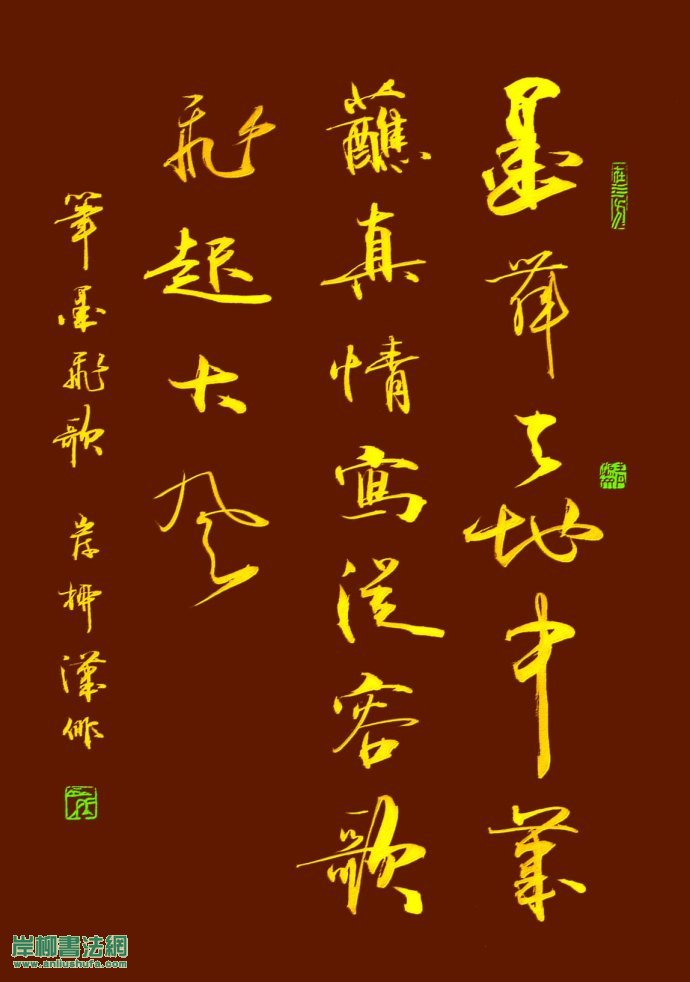 墨舞天地中筆
蘸真情寫從容歌
飛起大風
筆墨飛歌 岸柳漢俳
岸柳書法網
www.anliushufa.com